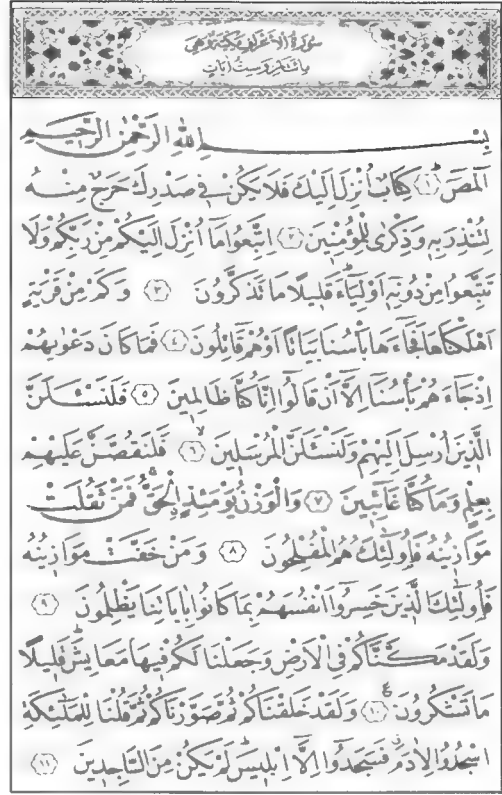 سورة الاعراف مكية وهي
مائتان وست آيات
بسم الله الرحمن الرحيم
الٓمٓصٓ ﴿١﴾ كِتَابٌ اُنْزِلَ اِلَيْكَ فَلَا يَكُنْ فٖى صَدْرِكَ حَرَجٌ مِنْهُ
لِتُنْذِرَ بِهٖ وَذِكْرٰى لِلْمُؤْمِنٖينَ ﴿٢﴾ اِتَّبِعُوا مَٓا اُنْزِلَ اِلَيْكُمْ مِنْ رَبِّكُمْ وَلَا
تَتَّبِعُوا مِنْ دُونِهٖٓ اَوْلِيَٓاءَ قَلٖيلًا مَا تَذَكَّرُونَ ﴿٣﴾ وَكَمْ مِنْ قَرْيَةٍ
اَهْلَكْنَاهَا فَجَٓاءَهَا بَأْسُنَا بَيَاتًا اَوْ هُمْ قَٓائِلُونَ ﴿٤﴾ فَمَا كَانَ دَعْوٰيهُمْ
اِذْ جَٓاءَهُمْ بَأْسُنَٓا اِلَّٓا اَنْ قَالُٓوا اِنَّا كُنَّا ظَالِمٖينَ ﴿٥﴾ فَلَنَسْـَٔلَنَّ
الَّذٖينَ اُرْسِلَ اِلَيْهِمْ وَلَنَسْـَٔلَنَّ الْمُرْسَلٖينَ ﴿٦﴾ فَلَنَقُصَّنَّ عَلَيْهِمْ
بِعِلْمٍ وَمَا كُنَّا غَٓائِبٖينَ ﴿٧﴾ وَالْوَزْنُ يَوْمَئِذٍ الْحَقُّ فَمَنْ ثَقُلَتْ
مَوَازٖينُهُ فَاُولٰٓئِكَ هُمُ الْمُفْلِحُونَ ﴿٨﴾ وَمَنْ خَفَّتْ مَوَازٖينُهُ
فَاُولٰٓئِكَ الَّذٖينَ خَسِرُٓوا اَنْفُسَهُمْ بِمَا كَانُوا بِاٰيَاتِنَا يَظْلِمُونَ ﴿٩﴾
وَلَقَدْ مَكَّنَّاكُمْ فِى الْاَرْضِ وَجَعَلْنَا لَكُمْ فٖيهَا مَعَايِشَ قَلٖيلًا
مَا تَشْكُرُونَ ﴿١٠﴾ وَلَقَدْ خَلَقْنَاكُمْ ثُمَّ صَوَّرْنَاكُمْ ثُمَّ قُلْنَا لِلْمَلٰٓئِكَةِ
اسْجُدُوا لِاٰدَمَ فَسَجَدُٓوا اِلَّٓا اِبْلٖيسَ لَمْ يَكُنْ مِنَ السَّاجِدٖينَ ﴿١١﴾